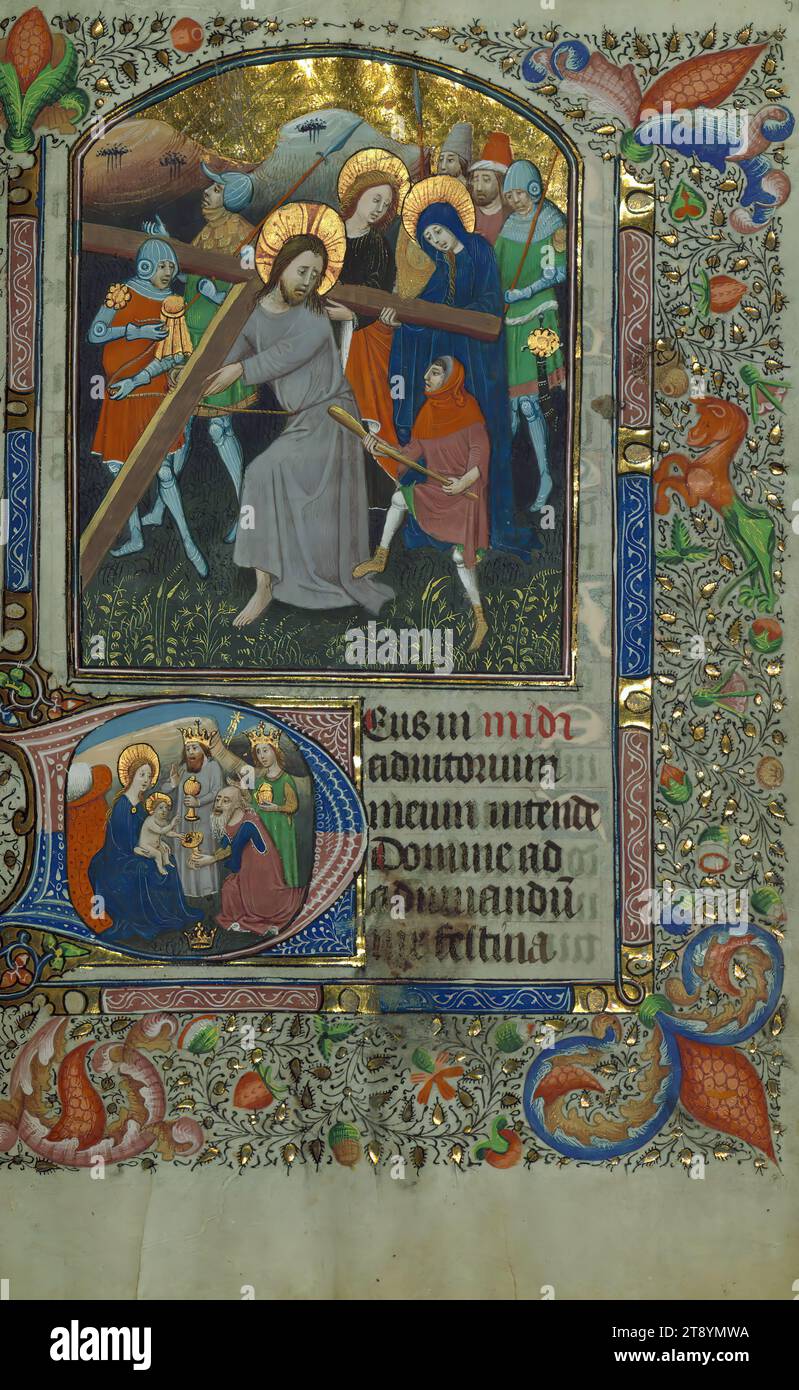 Deus in midi
adiutorium
meum intende
Domine ad
adiuuandū
me festina
alamy
alamy
Image ID: 2T8YMWA
www.alamy.com